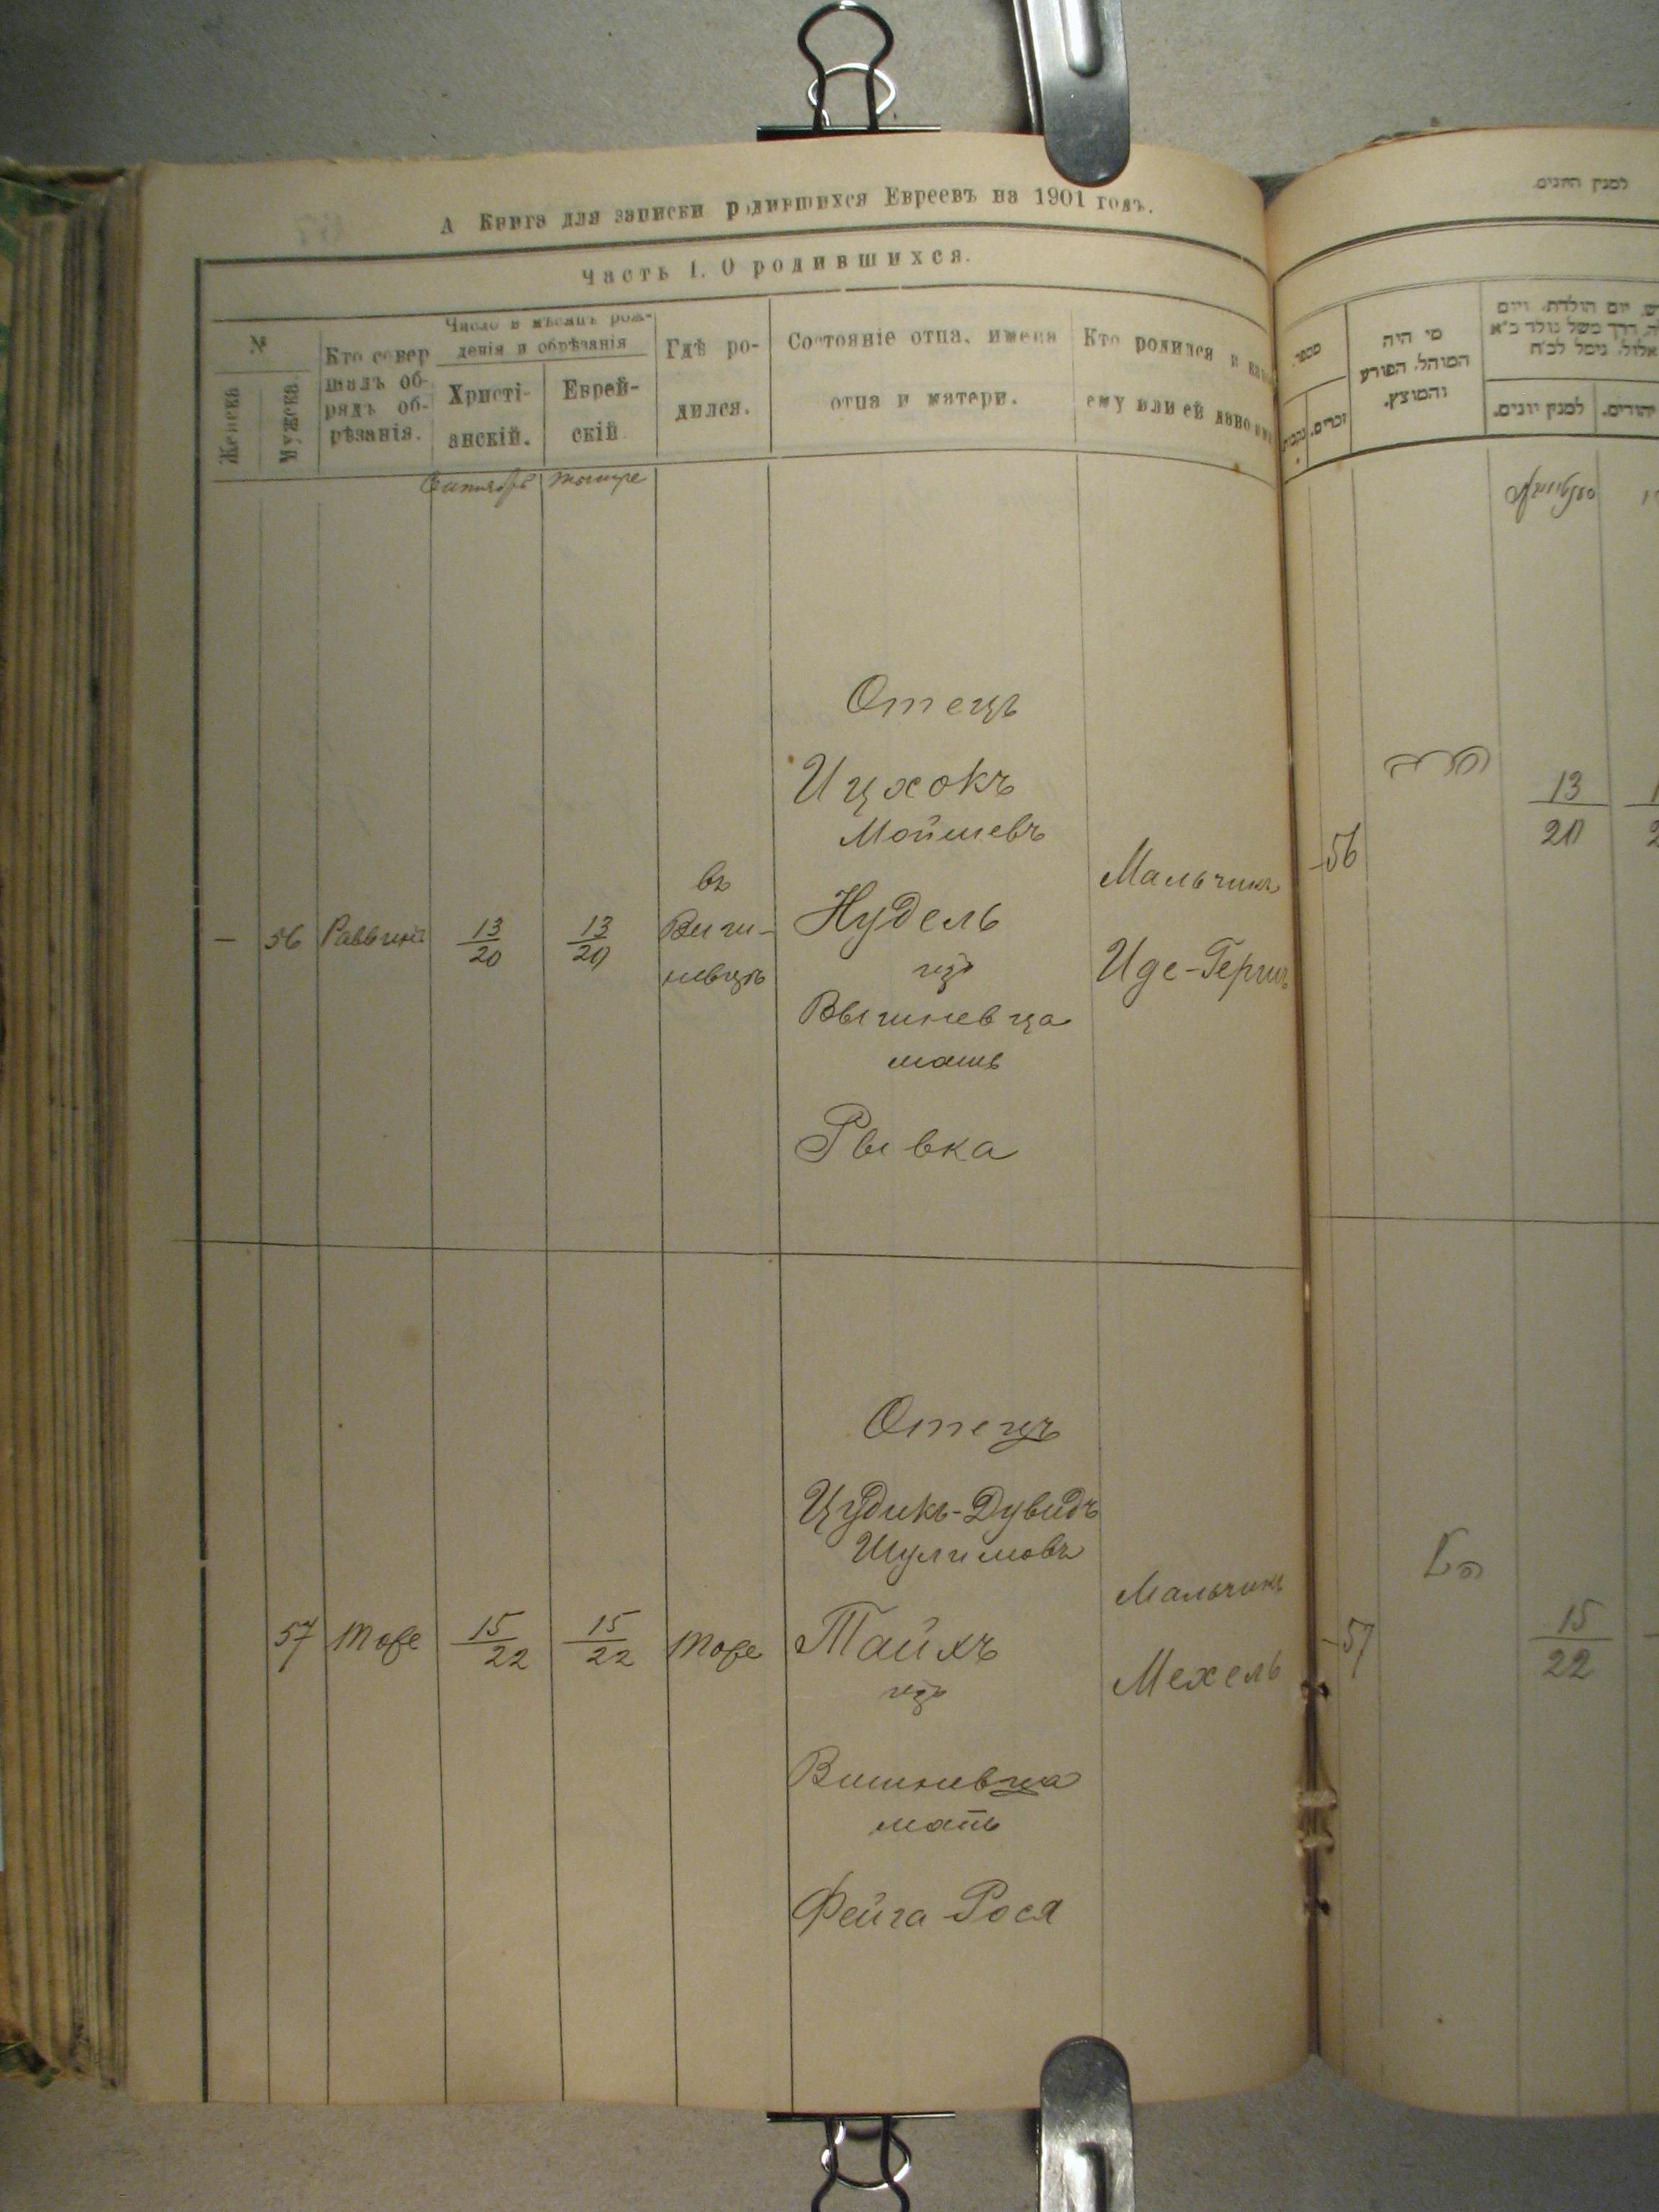 А Книга для записки родившихся Евреевъ на 1901 годъ.
Часть 1. О родившихся.
№
Женска
Мужска
Кто совер
шалъ об-
рядъ об-
рѣзанія.
Число и мѣсяцъ рож-
денія и обрѣзанія
Христі-
анскій.
Еврей-
скій
Гдѣ ро-
дился.
Состояніе отца, имена
отца и матери.
Кто родился и как
ему или ей дано имя
Сентябрь
Тишре
— 56 Раввинъ 13/20 13/20
въ
Виш-
невцѣ
Отецъ
Ицхокъ
Мойшевъ
Нудель
изъ
Вышневца
мать
Рывка
Мальчикъ
Иде-Герш
57 тоже 15/22 15/22 тоже
Отецъ
Цудикъ-Дувидъ
Шулимовъ
Тайхъ
изъ
Вишневца
мать
Фейга-Рося
Мальчикъ
Мехель
למנין היונים.
מספר
נקבות
זכרים.
מי היה
המוהל, הפורע
והמוצץ.
יום הולדת, ויום
למנין יונים.
יהודים.
56
13
20
57
15
22